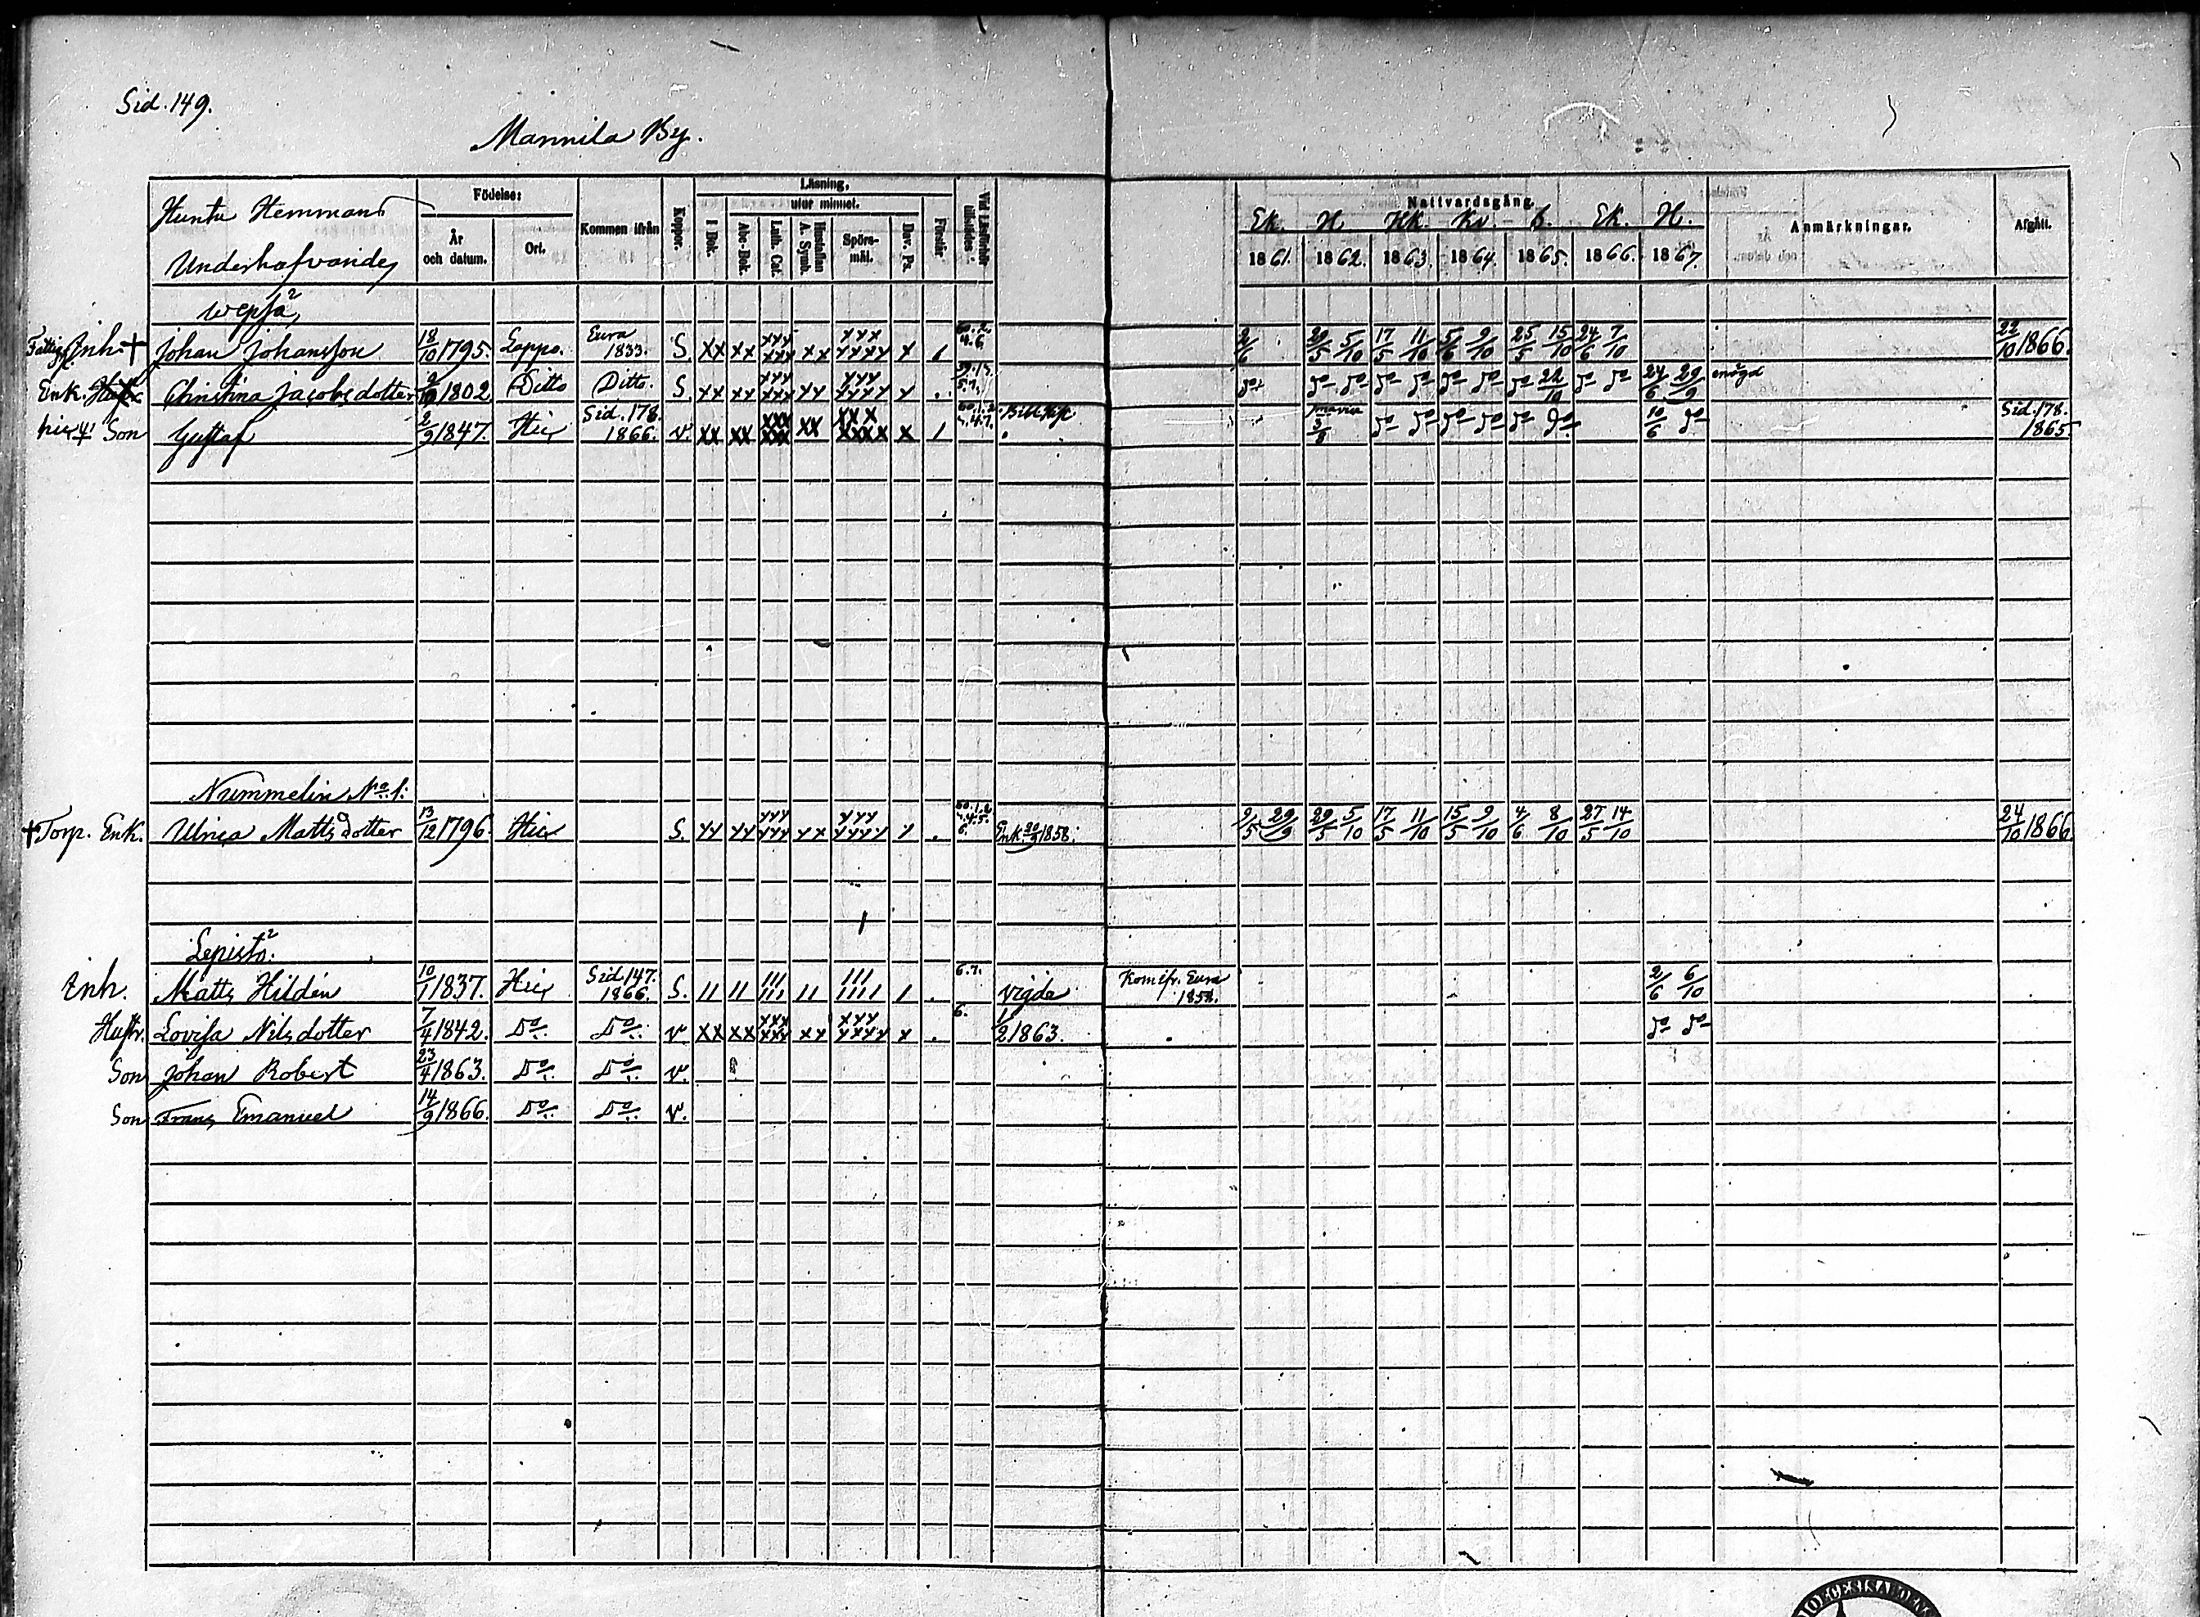 Sid. 149.
Mannila By.
Huntu Hemmans
Underhafvande
Födelse:
År och datum.
Ort.
Kommen ifrån
Koppor.
Läsning,
utur minnet.
I Bok.
Abc-Bok.
Luth. Cat.
Hustaflan A. Symb.
Spörsmål.
Dav. Ps.
Förstår
Nattvardsgång.
Ek. H. Hk. Kv. B. Ek. H.
1861. 1862. 1863. 1864. 1865. 1866. 1867.
Anmärkningar.
Afgått.
Wepsä 2
Fattig Inh. + Johan Johansson 18/10 1795. Lappo. Eura 1833. S. xx xx xxx xxx xx xxx xxxx x 2/6 29/5 5/10 17/5 11/10 5/6 9/10 25/5 15/10 24/6 7/10 22/10 1866.
Enk. Christina Jacobsdotter 1802 Ditto Ditto. S. xx xx xxx xxx xx xxx xxxx x do do do do do do do do 22/10 do do 24/6 29/9 enögd
Son Gustaf 2/9 1847. Här Sid. 178. 1866. v. xx xx xxx xxx xx xxx xxxx x do do do do do do 10/6 do Sid. 178. 1865.
Nummelin No 1:
+ Torp. Enk. Ulrica Mattsdotter 13/12 1796. Här S. xx xx xxx xxx xx xxx xxxx x Enk. 20/9 1858. 9/5 29/9 29/5 5/10 17/5 11/10 15/5 9/10 4/6 8/10 27/5 14/10 24/10 1866
Lepistö 2
Inh. Matts Hildén 10/1 1837. Här Sid. 147. 1866. S. II II III III II III IIII I 6.7. Vigde Kom ifr. Eura 1858. 2/6 6/10
Hustr. Lovisa Nilsdotter 7/4 1842. Do Do v. xx xx xxx xxx xx xxx xxxx x 6. 1/2 1863. do do
Son Johan Robert 23/4 1863. Do Do v.
Son Frans Emanuel 14/9 1866. Do Do v.